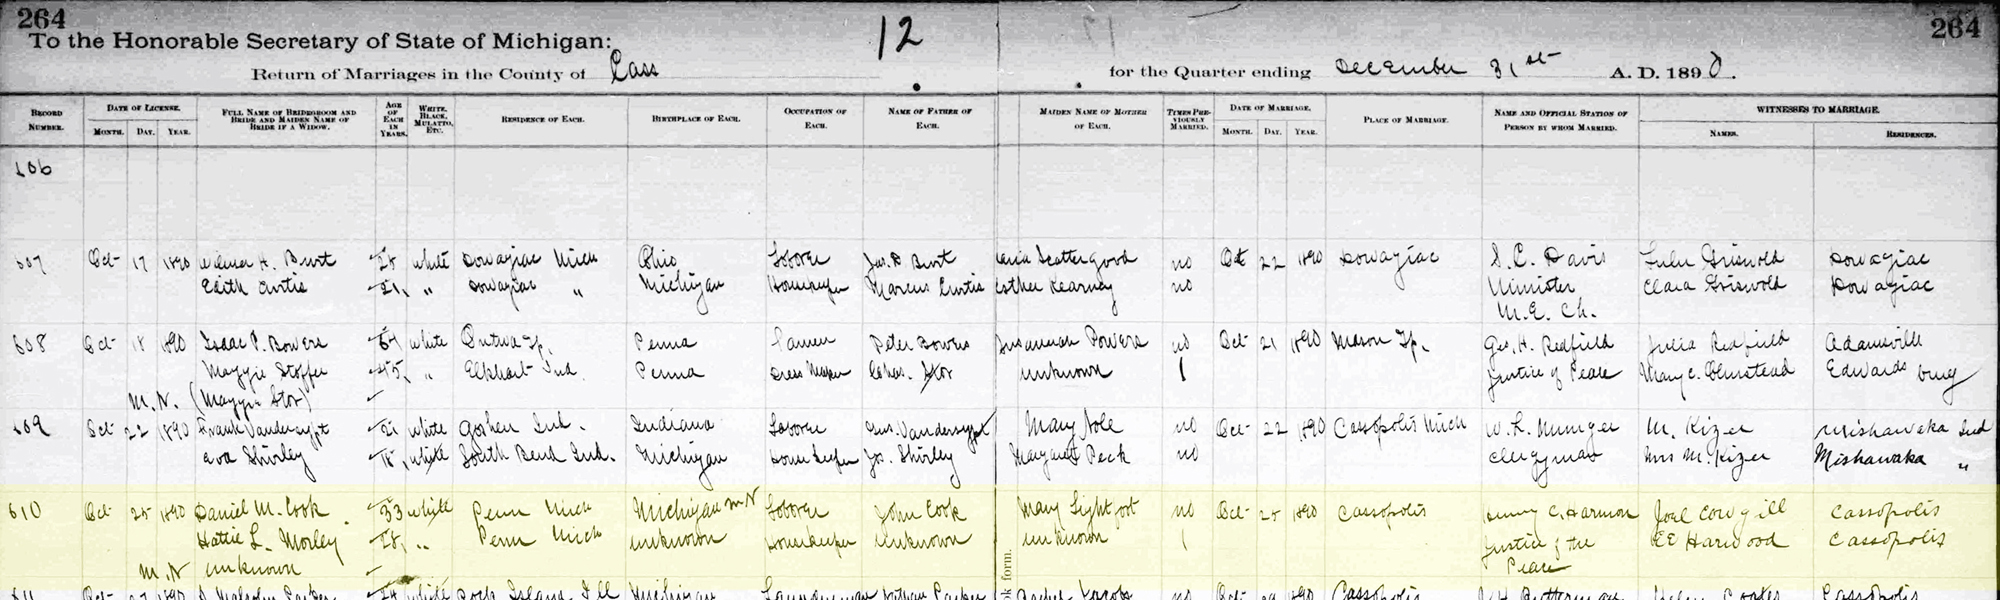 264
264
To the Honorable Secretary of State of Michigan:
12
Return of Marriages in the County of Cass
for the Quarter ending December 31st A. D. 1890.
RECORD NUMBER.
DATE OF LICENSE.
MONTH. DAY. YEAR.
FULL NAME OF BRIDEGROOM AND BRIDE AND MAIDEN NAME OF BRIDE IF A WIDOW.
AGE OF EACH IN YEARS.
WHITE, BLACK, MULATTO, ETC.
RESIDENCE OF EACH.
BIRTHPLACE OF EACH.
OCCUPATION OF EACH.
NAME OF FATHER OF EACH.
MAIDEN NAME OF MOTHER OF EACH.
TIMES PREVIOUSLY MARRIED.
DATE OF MARRIAGE.
MONTH. DAY. YEAR.
PLACE OF MARRIAGE.
NAME AND OFFICIAL STATION OF PERSON BY WHOM MARRIED.
WITNESSES TO MARRIAGE.
NAMES.
RESIDENCES.
606
607 Oct 17 1890 H. Burt white Dowagiac Mich Ohio Laborer Jas. Burt Scattergood no Oct 22 1890 Dowagiac S. C. Davis Lulu Griswold Dowagiac
Edith Curtis 21 " Dowagiac " Michigan Housekeeper Marcus Curtis Esther Kearney no Minister Clara Griswold Dowagiac
M. E. Ch.
608 Oct 18 1890 Isaac P. Bowers 64 white Ontwa Tp. Penna Farmer Peter Bowers Susannah Powers no Oct 21 1890 Mason Tp. Geo. H. Redfield Julia Redfield Adamsville
Maggie Stoffer 45 " Elkhart Ind. Penna Dress Maker Chas. Stor unknown 1 Justice of Peace Mary C. Olmstead Edwardsburg
M. N. (Maggie Stor)
609 Oct 22 1890 Frank 21 white Goshen Ind. Indiana Laborer Mary Nole no Oct 22 1890 Cassopolis Mich W. L. M. Kizer Mishawaka Ind
Eva Shirley 18 white South Bend Ind. Michigan Housekeeper Jos. Shirley Margaret Peck no Clergyman Mrs M. Kizer Mishawaka "
610 Oct 25 1890 Daniel M. Cook 33 white Penn Mich Michigan M N Laborer John Cook Mary Lightfoot no Oct 25 1890 Cassopolis Henry C. Harmon Joel Cowgill Cassopolis
Hattie L. Morley 28 " Penn Mich unknown Housekeeper Unknown unknown 1 Justice of the E E Harwood Cassopolis
M. N unknown Peace
form.
611 Oct 27 1890 Malcolm Parker 24 white Rock Island Ill Michigan Parker Rachel Jacobs no Oct 1890 Cassopolis Helen Coates Cassopolis